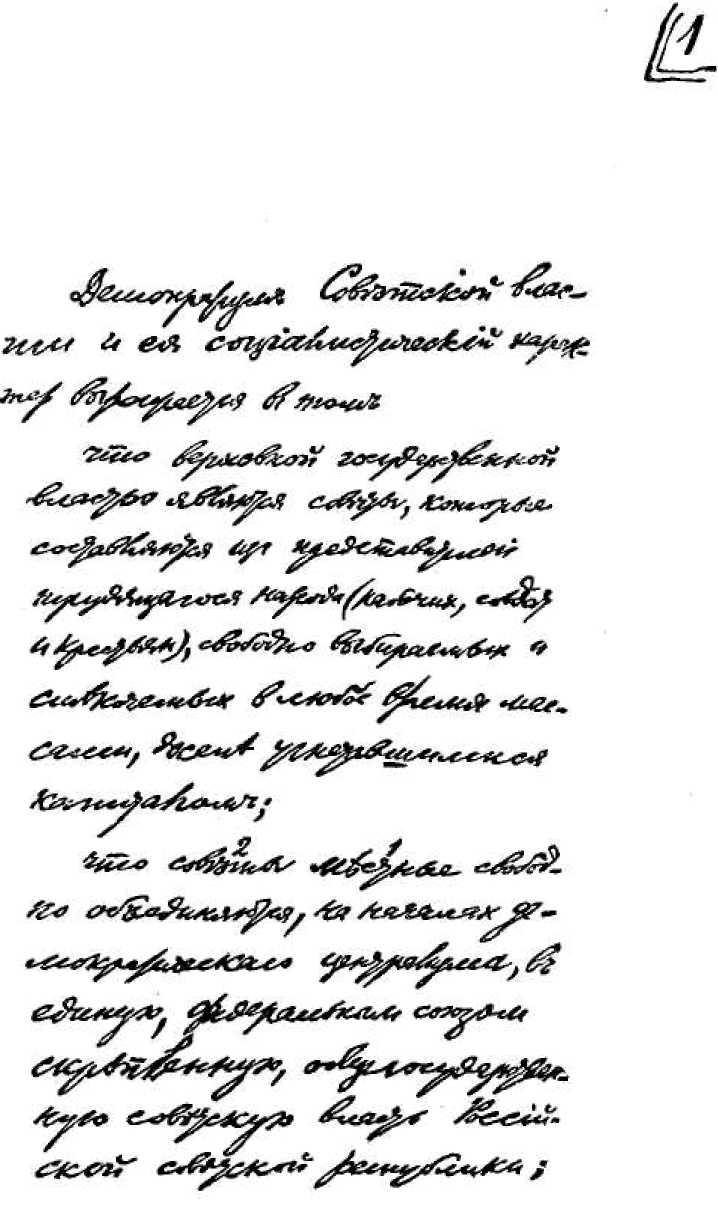 1
Демократизм Совѣтской влас-
ти и ея соціалистическій харак-
тер выражается в томъ
что верховной государственной
властью являются совѣты, которые
составляются из представителей
трудящагося народа (рабочих, солдат
и крестьян), свободно выбираемых и
сменяемых в любое время мас-
сами, доселѣ угнетавшимися
капиталомъ;
что совѣты 2 мѣстные 1 свобод-
но объединяются, на началах де-
мократическаго централизма, въ
единую, федеральным союзом
скрѣпленную, общегосударствен-
ную совѣтскую власть Россій-
ской совѣтской республики;